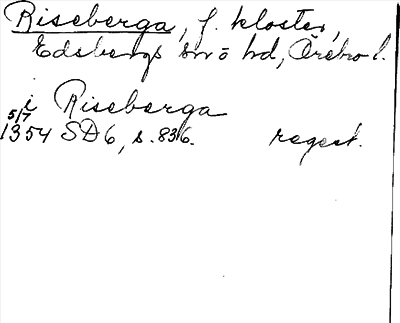 Riseberga, f. kloster,
Edsbergs sn o hd, Örebro l.
i Riseberga
5/7
1354 SD 6, s. 836. regest.